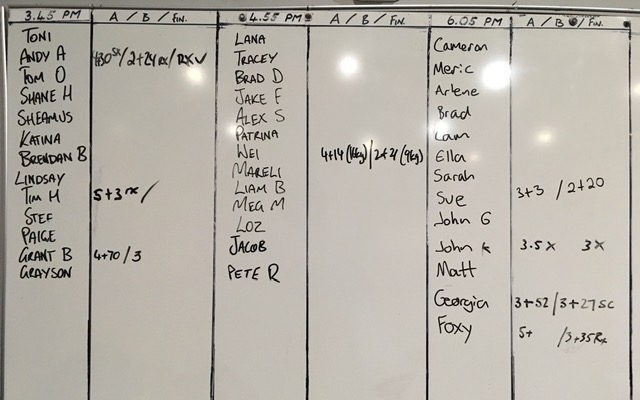 3.45 PM
A / B / FIN.
TONI
ANDY A
430SX / 2+24RX / RX✓
TOM O
SHANE H
SHEAMUS
KATINA
BRENDAN B
LINDSAY
TIM H
5+3RX /
STEF
PAIGE
GRANT B
4+70 / 3
GRAYSON
4.55 PM
A / B / FIN.
LANA
TRACEY
BRAD D
JAKE F
ALEX S
PATRINA
WEI
4+14 (16kg) / 2+21 (9kg)
MARELI
LIAM B
MEG M
LOZ
JACOB
PETE R
6.05 PM
A / B / FIN.
Cameron
Meric
Arlene
Brad
Cam
Ella
Sarah
Sue
3+3 / 2+20
John G
John K
3.5x 3x
Matt
Georgia
3+52 / 3+27SC
Foxy
5+ / 3+35Rx